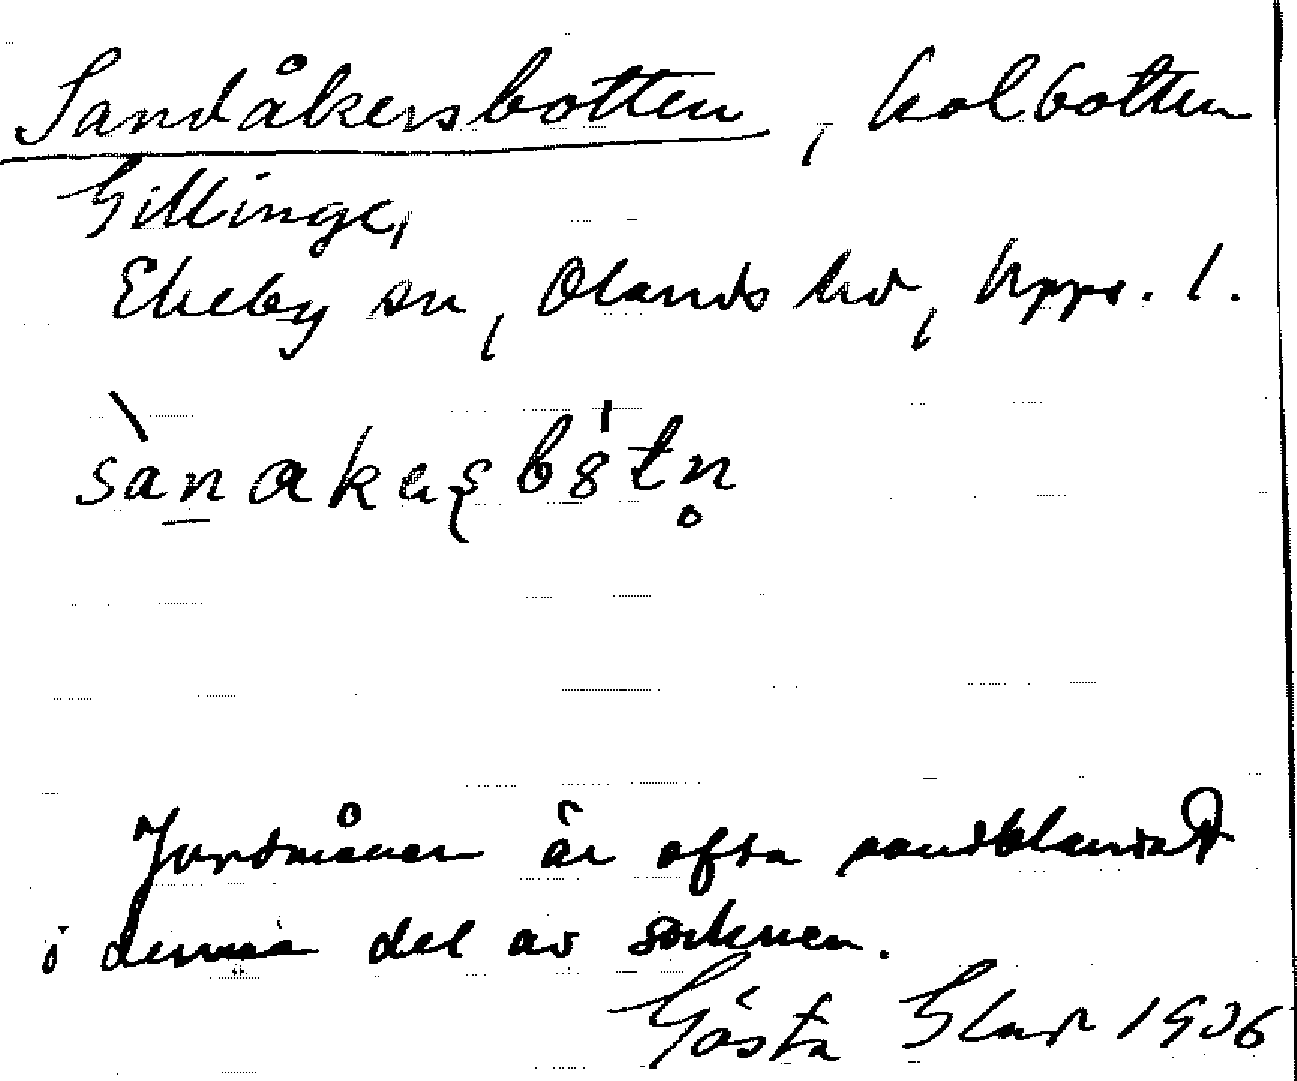 Sandåkersbotten, kolbotten
Gillinge,
Ekeby sn, Olands hd, Upps. l.
Jordmånen är ofta sandblandad
i denna del av socknen.
Gösta 1936